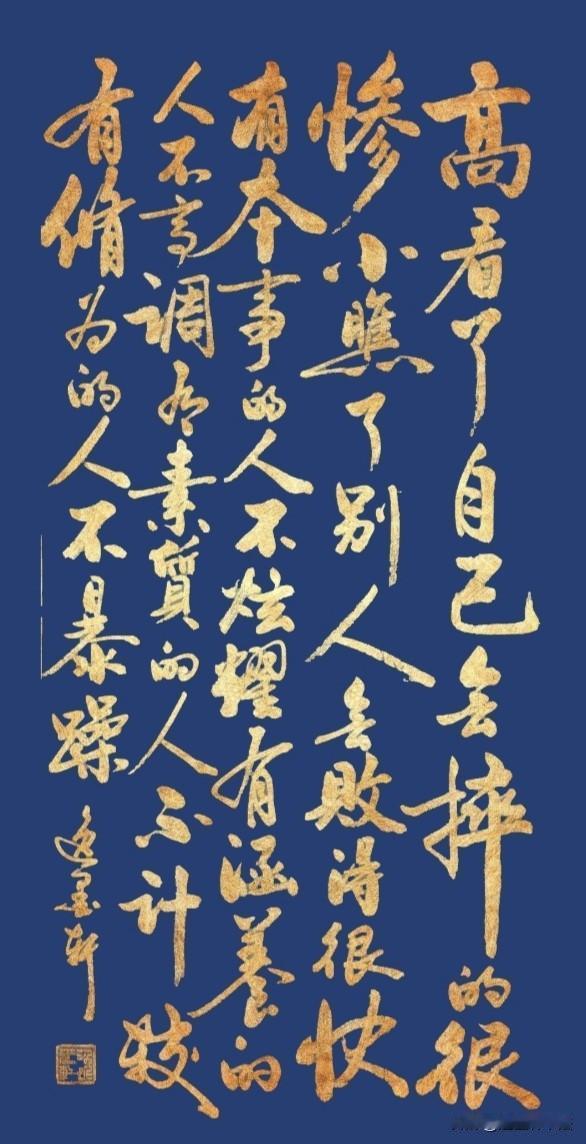 高看了自己会摔的很
惨小瞧了别人会败得很快
有本事的人不炫耀有涵養的
人不高调有素質的人不计较
有脩为的人不暴躁
逸墨轩